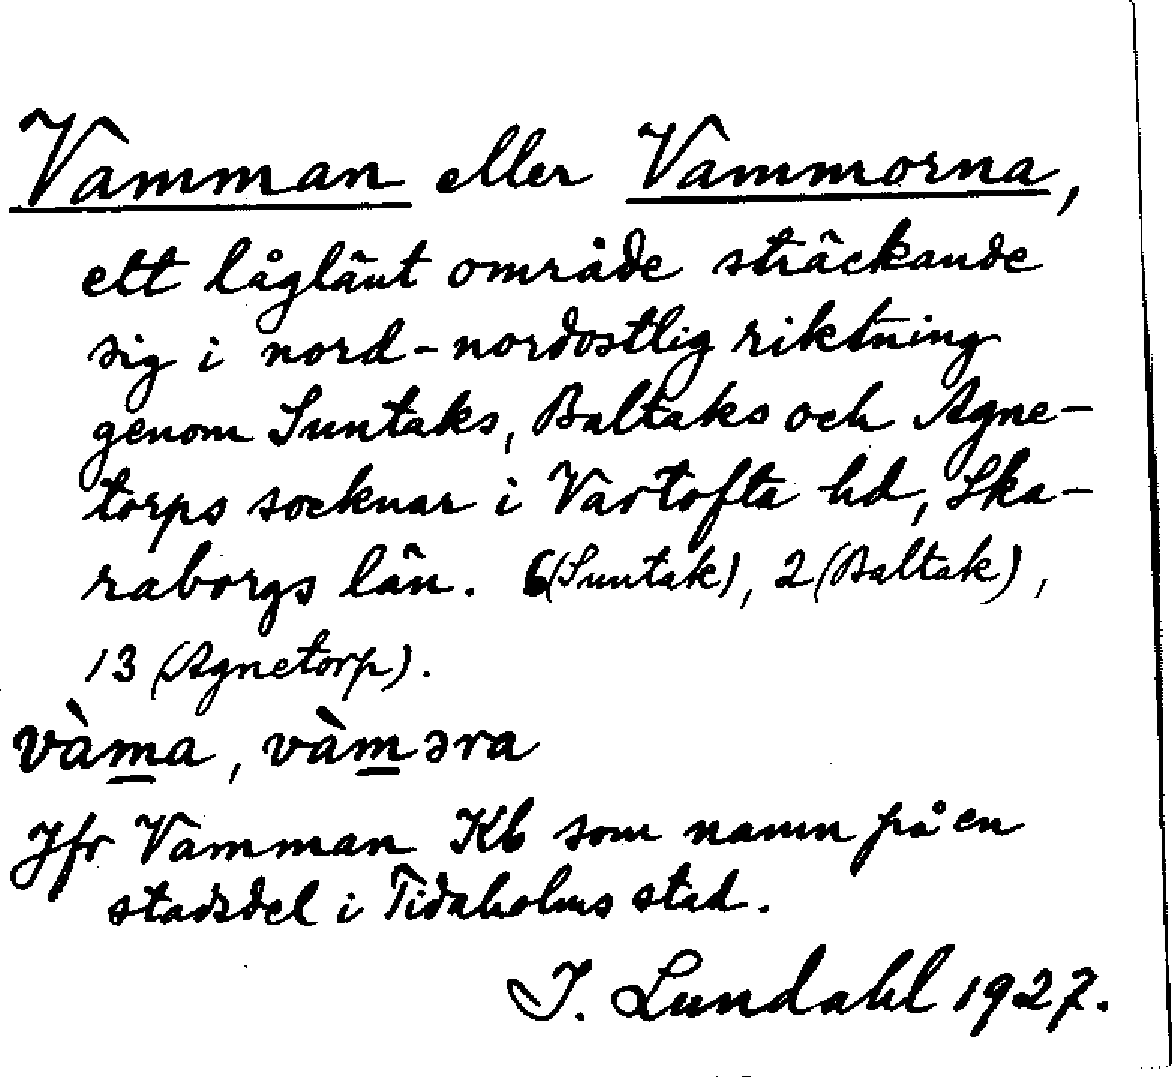 Vamman eller Vammorna,
ett låglänt område sträckande
sig i nord-nordostlig riktning
genom Suntaks, Baltaks och Agne-
torps socknar i Vartofta hd, Ska-
raborgs län. 6(Suntak), 2(Baltak),
13 (Agnetorp).
vàm̲a, vàm̲əra
Jfr Vamman Kb som namn på en
stadsdel i Tidaholms stad.
I. Lundahl 1927.